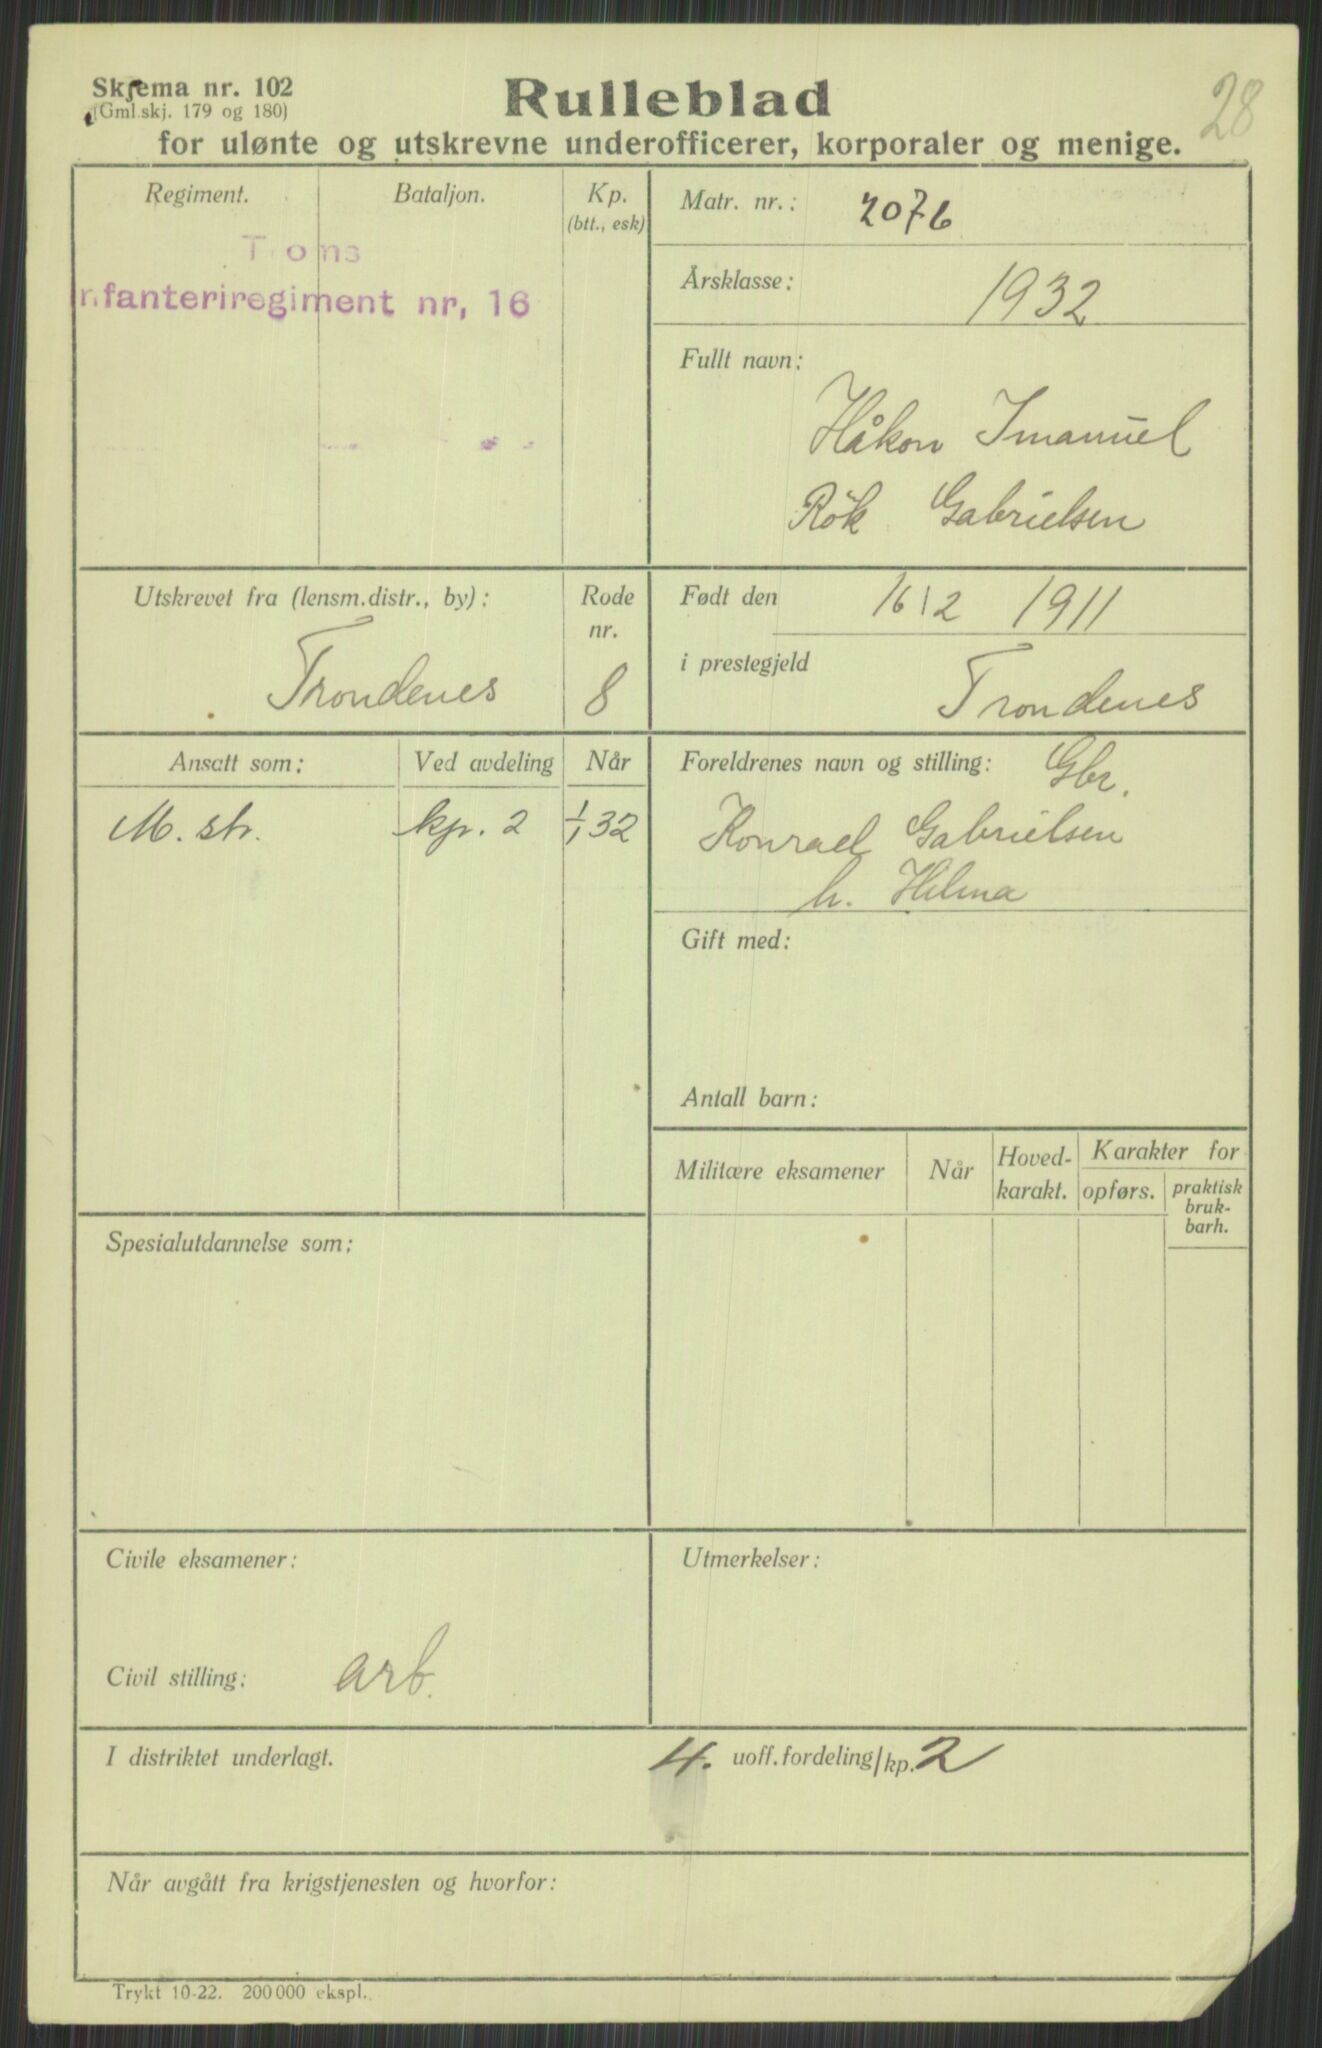 Skjema nr. 102
(Gml.skj. 179 og 180)
Rulleblad
28
for ulønte og utskrevne underofficerer, korporaler og menige.
Regiment.
Bataljon.
Kp.
(btt., esk)
Troms
nfanteriregiment nr, 16
Matr. nr.: 2076
Årsklasse: 1932
Fullt navn:
Håkon Imanuel
Rök Gabrielsen
Utskrevet fra (lensm.distr., by):
Trondenes
Rode
nr.
8
Født den 16/2 1911
i prestegjeld Trondenes
Ansatt som:
Ved avdeling
Når
M. str.
kp. 2
1/1 32
Foreldrenes navn og stilling: Gbr.
Konrad Gabrielsen
h. Hilma
Gift med:
Antall barn:
Militære eksamener
Når
Hoved-
karakt.
Karakter for
opførs.
praktisk
bruk-
barh.
Spesialutdannelse som:
Civile eksamener:
Civil stilling: arb.
Utmerkelser:
I distriktet underlagt. 4. uoff.fordeling/kp. 2
Når avgått fra krigstjenesten og hvorfor:
Trykt 10-22. 200 000 ekspl.